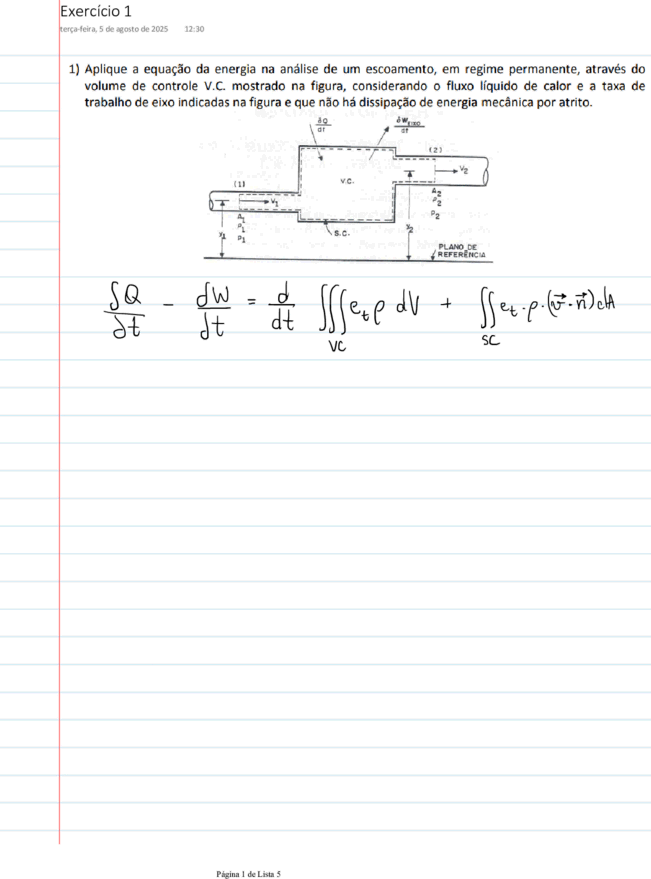 Exercício 1
terça-feira, 5 de agosto de 2025 12:30
1) Aplique a equação da energia na análise de um escoamento, em regime permanente, através do
volume de controle V.C. mostrado na figura, considerando o fluxo líquido de calor e a taxa de
trabalho de eixo indicadas na figura e que não há dissipação de energia mecânica por atrito.
δQ/dt δW_EIXO/dt
(2)
V₂
(1) V.C.
V₁
A₁ A₂
ρ₁ ρ₂
p₁ p₂
y₁ y₂
S.C.
PLANO DE
REFERÊNCIA
δQ/δt - δW/δt = d/dt ∭ e_t ρ dV + ∬ e_t · ρ · (v⃗ · n⃗) dA
VC SC
Página 1 de Lista 5